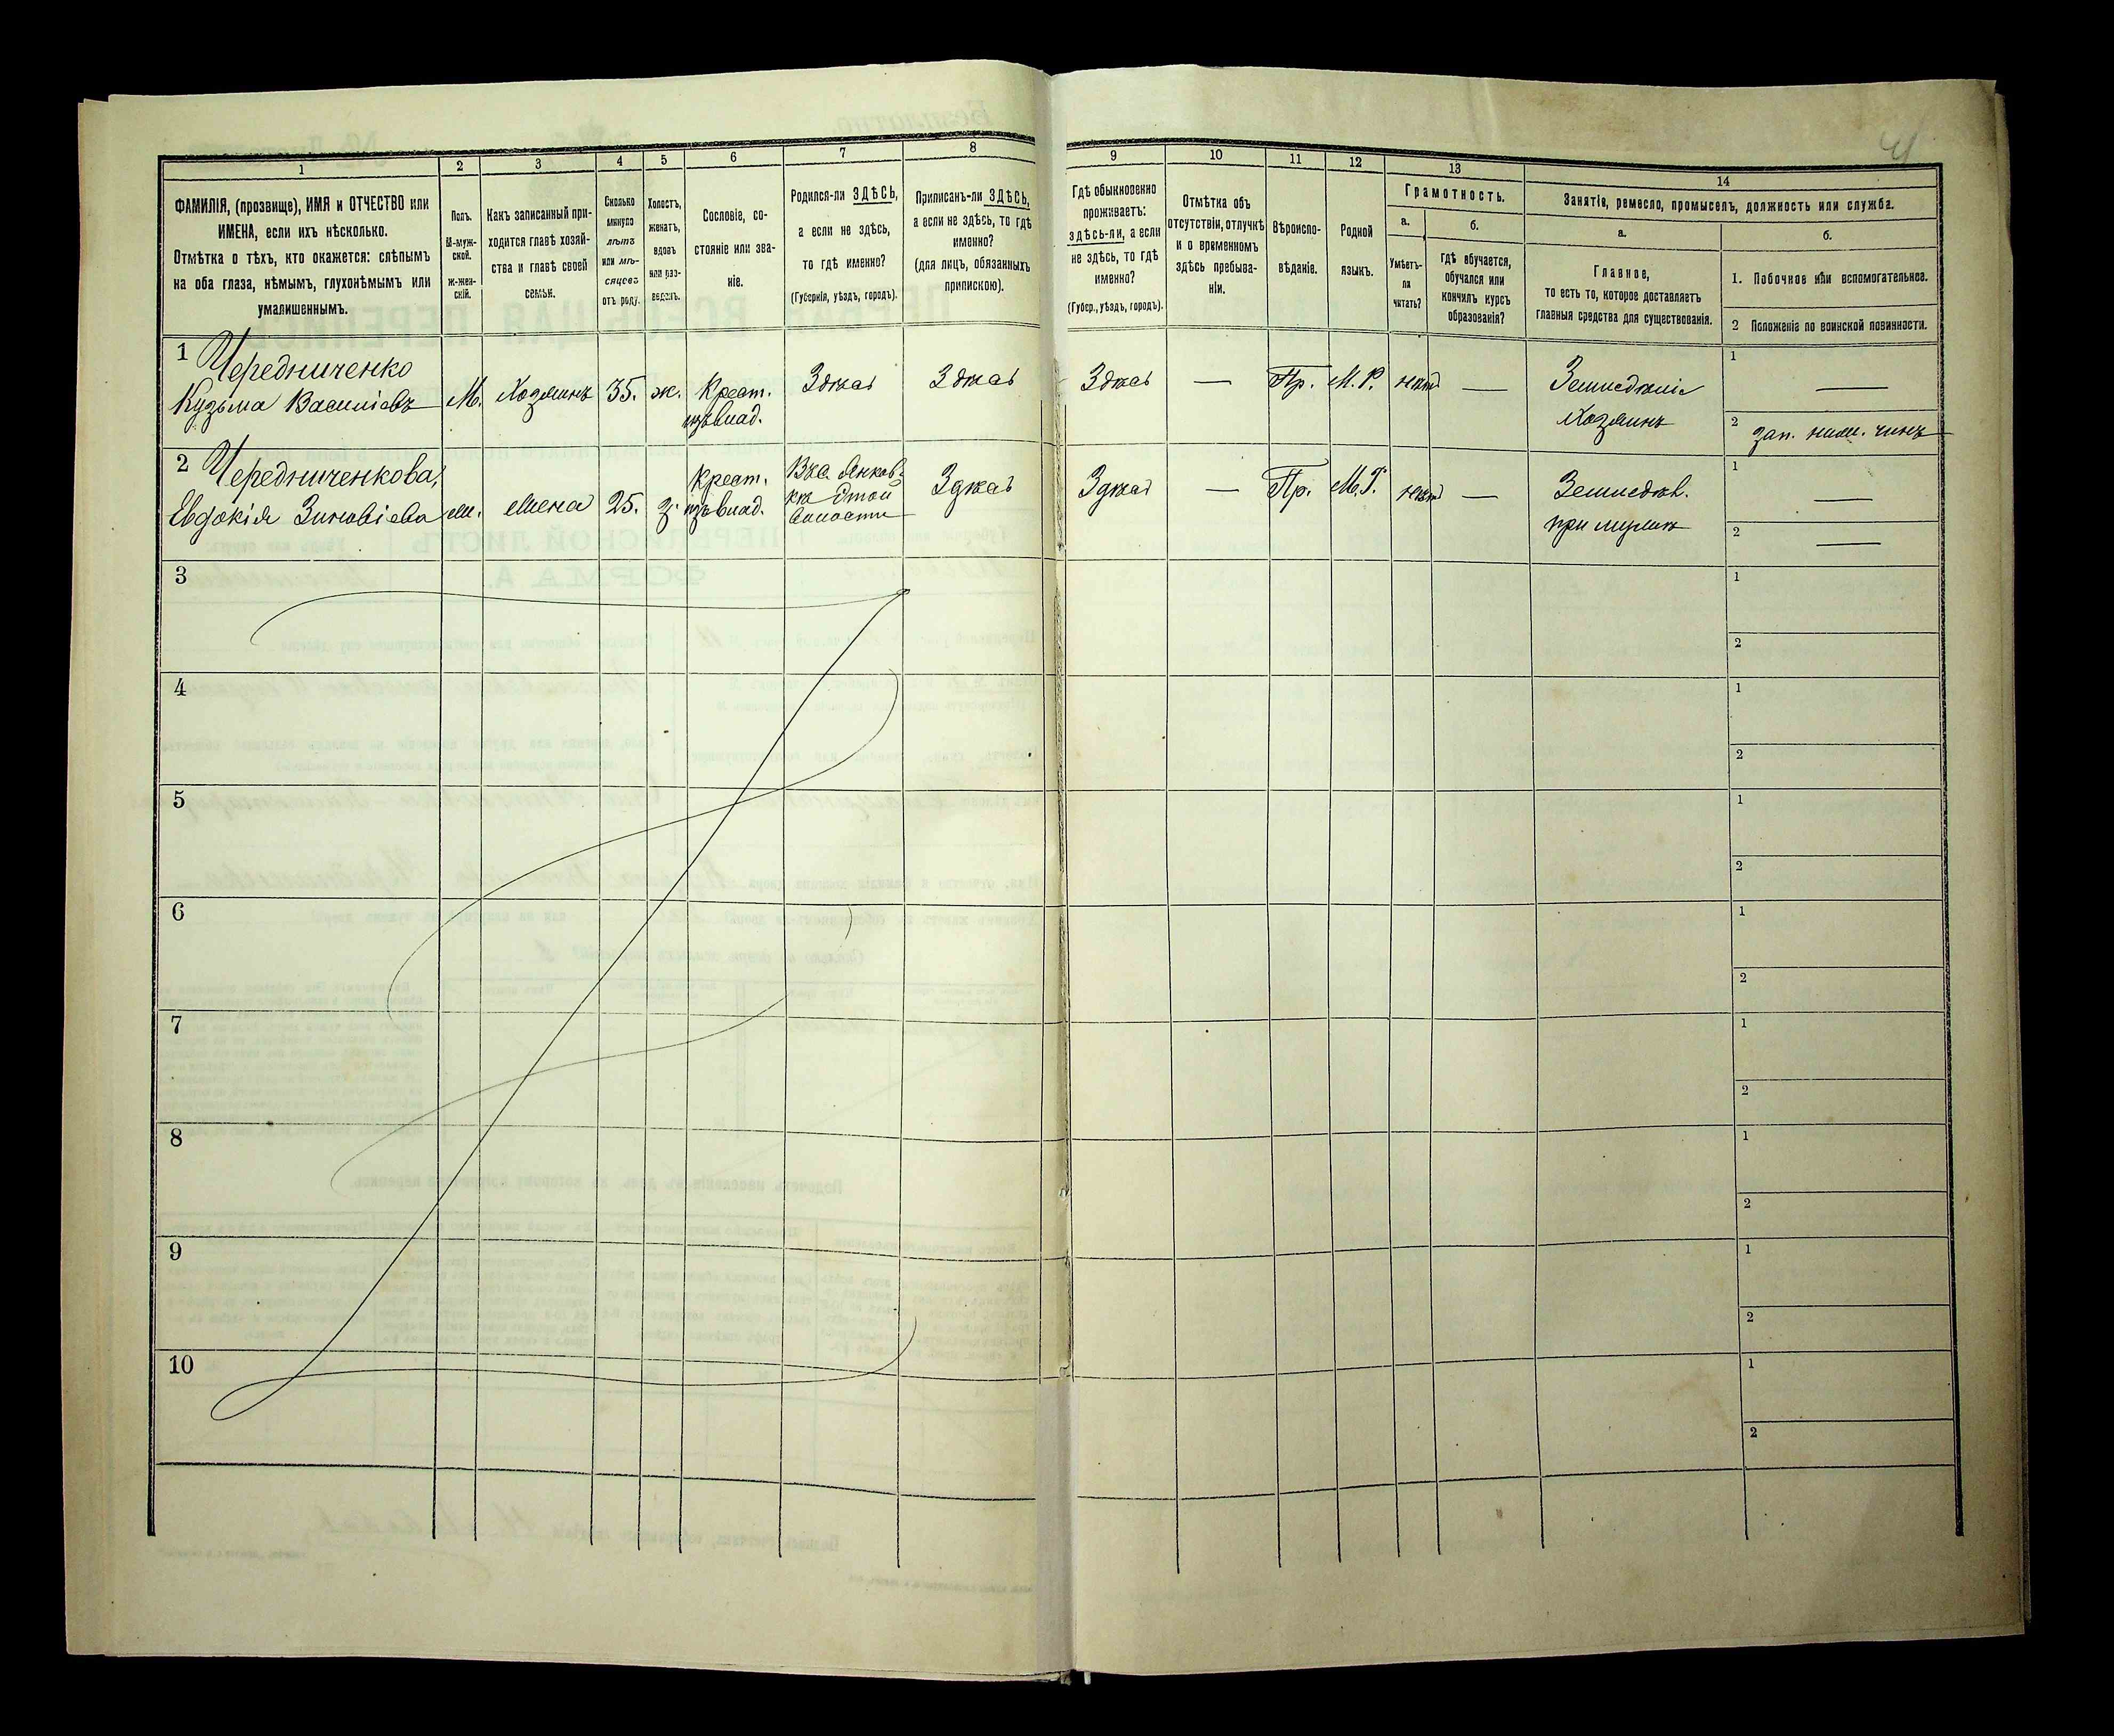 41
1
2
3
4
5
6
7
8
9
10
11
12
13
14
ФАМИЛІЯ, (прозвище), ИМЯ и ОТЧЕСТВО или
ИМЕНА, если ихъ нѣсколько.
Отмѣтка о тѣхъ, кто окажется: слѣпымъ
на оба глаза, нѣмымъ, глухонѣмымъ или
умалишеннымъ.
Полъ.
М-муж-
ской.
Ж-жен-
скій.
Какъ записанный при-
ходится главѣ хозяй-
ства и главѣ своей
семьи.
Сколько
минуло
лѣтъ
или мѣ-
сяцевъ
отъ роду.
Холостъ,
женатъ,
вдовъ
или раз-
веденъ.
Сословіе, со-
стояніе или зва-
ніе.
Родился-ли ЗДѢСЬ,
а если не здѣсь,
то гдѣ именно?
(Губернія, уѣздъ, городъ).
Приписанъ-ли ЗДѢСЬ,
а если не здѣсь, то гдѣ
именно?
(для лицъ, обязанныхъ
припискою).
Гдѣ обыкновенно
проживаетъ:
здѣсь-ли, а если
не здѣсь, то гдѣ
именно?
(Губер., уѣздъ, городъ).
Отмѣтка объ
отсутствіи, отлучкѣ
и о временномъ
здѣсь пребыва-
ніи.
Вѣроиспо-
вѣданіе.
Родной
языкъ.
Грамотность.
а.
Умѣетъ-
ли
читать?
б.
Гдѣ обучается,
обучался или
кончилъ курсъ
образованія?
Занятіе, ремесло, промыселъ, должность или служба.
а.
Главное,
то есть то, которое доставляетъ
главныя средства для существованія.
б.
1. Побочное или вспомогательное.
2 Положеніе по воинской повинности.
1 Чередниченко
Кузьма Василіевъ
М.
Хозяинъ
35.
ж.
Крест.
изъ влад.
Здѣсь
Здѣсь
Здѣсь
—
Пр.
М. Р.
нѣтъ
—
Земледѣліе
Хозяинъ
1 —
2 зап. ниж. чинъ
2 Чередниченкова,
Евдокія Зиновіева
Жена
25.
з.
Крест.
изъ влад.
этой
волости
Здѣсь
Здѣсь
—
Пр.
М. Р.
нѣтъ
—
Земледѣл.
при мужѣ
1 —
2 —
3
1
2
4
1
2
5
1
2
6
1
2
7
1
2
8
1
2
9
1
2
10
1
2